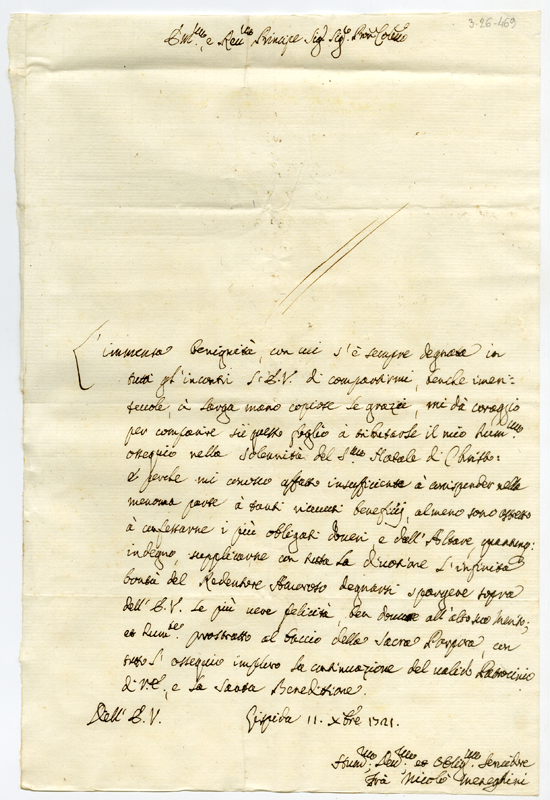 3-26-469
Em.mo, e Reu.mo Principe Sig.r Sig.r Pron Col.mo
L'immensa benignità, con cui s'è sempre degnata in
tutti gl'incontri l'E.V. di compartirmi, benche imeri-
teuole, à larga mano copiose le grazie, mi dà coraggio
per comparire sù questo foglio à tributarle il mio hum.mo
ossequio nella Solennità del S.mo Natale di Christo:
e perche mi conosco affatto insufficiente à corrisponder nella
menoma parte à tanti riceuuti beneficij, almeno sono
à confessarne i più obligati doueri e dall'Altare, quantunq:
indegno, supplicarne con tutta la diuotione l'infinita
bontà del Redentore degnarsi spargere sopra
dell'E.V. le più uere felicità, ben douute all'alto suo merito;
et hum.te prostrato al baccio della Sacra Porpora, con
tutto l'ossequio imploro la continuazione del ualido Patrocinio
di V.E., e la Santa Benedittione.
Dell'E.V. 11. Xbre 1721.
Hum.mo Deu.mo et Oblig.mo Seruitore
Frà Nicolò Meneghini